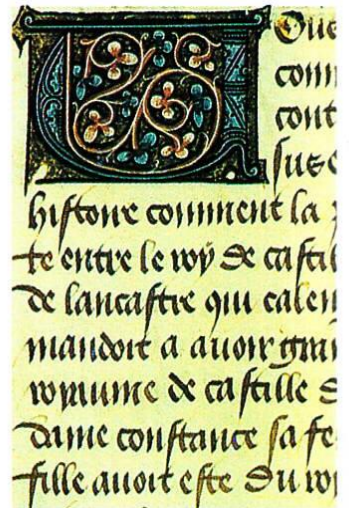 Vous
comm
cont
sus e
histoire comment la p
te entre le roy de castil
de lancastre qui calen
mandoit a auoir gran
royaume de castille d
dame constance sa fe
fille auoit este du roy